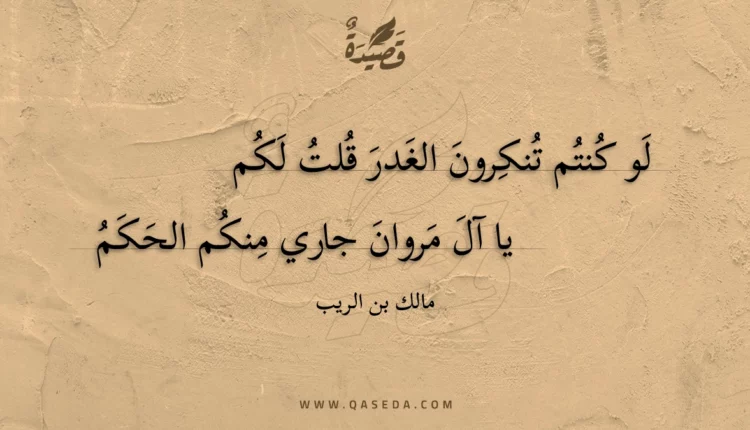 قَصِيدَةٌ
لَو كُنتُم تُنكِرونَ الغَدرَ قُلتُ لَكُم
يا آلَ مَروانَ جاري مِنكُم الحَكَمُ
مالك بن الريب
WWW.QASEDA.COM